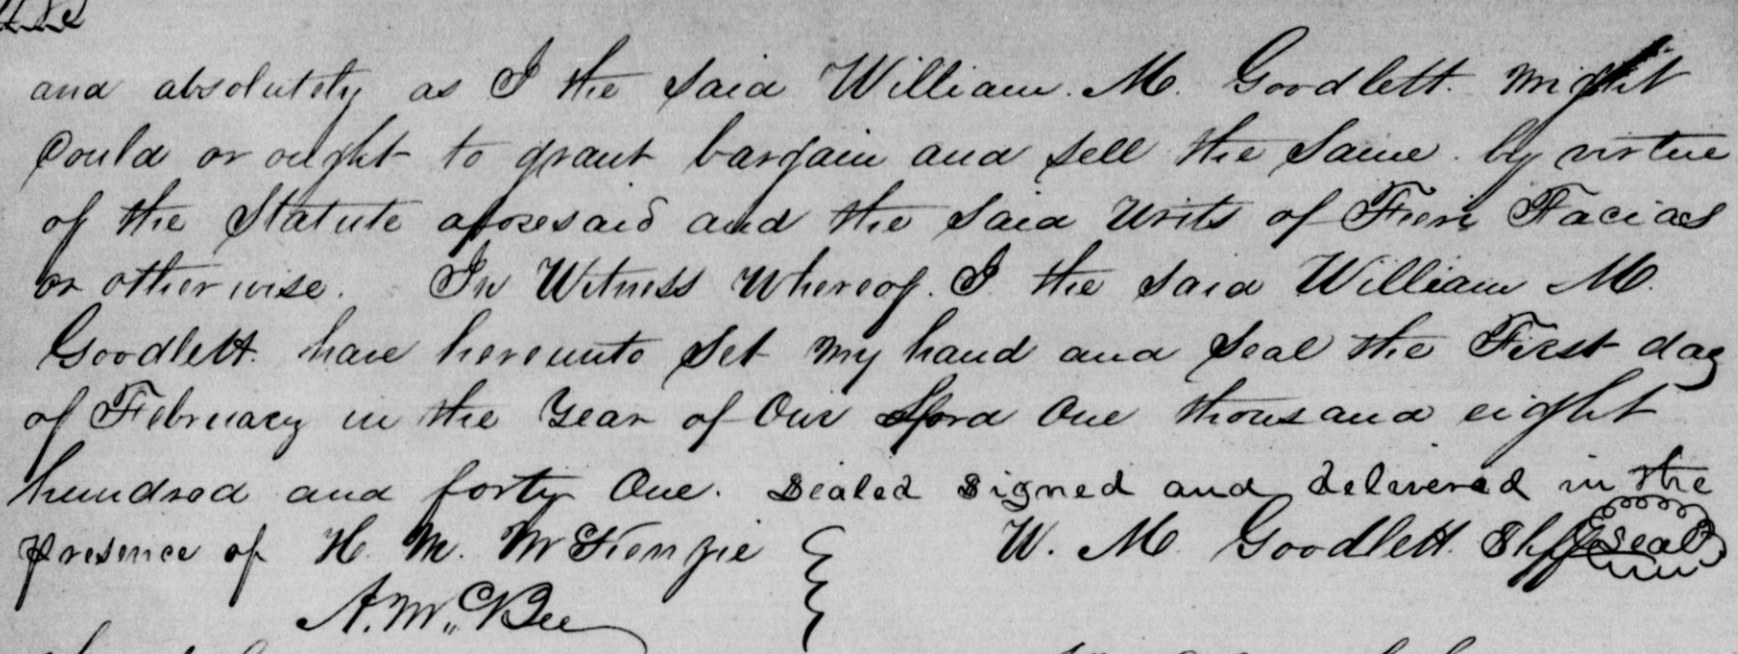 and absolutely as I the said William. M. Goodlett. might
Could or ought to grant bargain and sell the same. by virtue
of the Statute aforesaid and the said Writs of Fieri Facias
or otherwise. In Witness Whereof. I. the said William M.
Goodlett. have hereunto Set my hand and Seal the First day
of February in the Year of Our Lord One thousand eight
hundred and forty One. Sealed Signed and delivered in the
presence of H. M. McKenzie W. M. Goodlett. Shff Seal
A. McBee